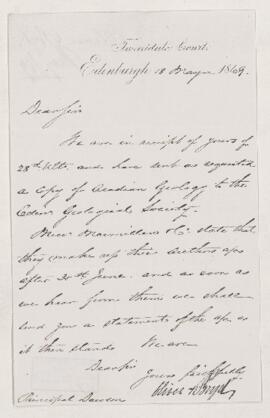 Tweeddale Court,
Edinburgh 18 May 1869.
Dear Sir
We are in receipt of yours of
28th Ulto. and have sent as requested
a copy of Acadian Geology to the
Edinr Geological Society.
Messrs Macmillan & Co. state that
they make up their authors a/cs
after 30th June. and as soon as
we hear from them we shall
send you a statement of the a/c as
it then stands We are
Dear Sir
Yours faithfully
Oliver & Boyd
Principal Dawson